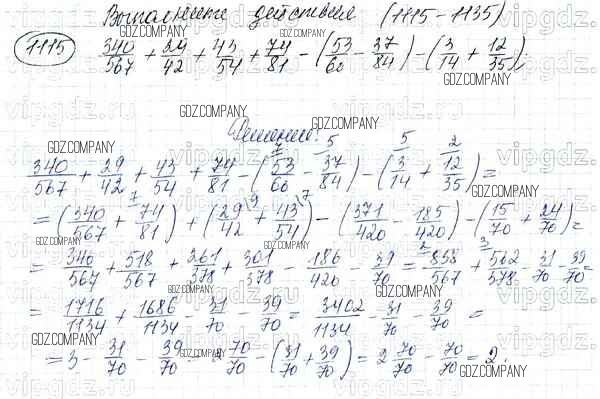 Выполните действия (1115-1135)
1115 340/567 + 29/42 + 43/54 + 74/81 - (53/60 - 37/84) - (3/14 + 12/35)
GDZ.COMPANY
GDZ.COMPANY
GDZ.COMPANY
Решение:
GDZ.COMPANY
7 5 5 2
340/567 + 29/42 + 43/54 + 74/81 - (53/60 - 37/84) - (3/14 + 12/35) =
GDZ.COMPANY
7 9 7
= (340/567 + 74/81) + (29/42 + 43/54) - (371/420 - 185/420) - (15/70 + 24/70) =
GDZ.COMPANY
GDZ.COMPANY
2 3
= 340/567 + 518/567 + 261/378 + 301/378 - 186/420 - 39/70 = 858/567 + 562/378 - 31/70 - 39/70 =
GDZ.COMPANY
= 1716/1134 + 1686/1134 - 31/70 - 39/70 = 3402/1134 - 31/70 - 39/70 =
GDZ.COMPANY
GDZ.COMPANY
= 3 - 31/70 - 39/70 = 2 70/70 - (31/70 + 39/70) = 2 70/70 - 70/70 = 2.